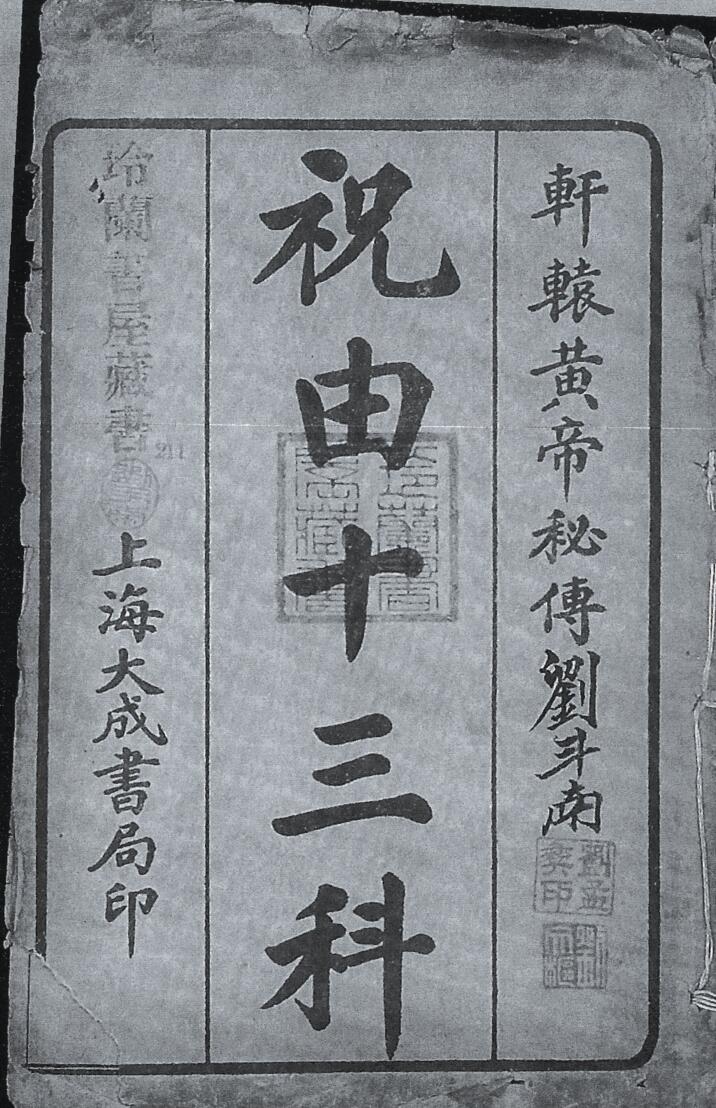 軒轅黃帝秘傳
劉斗南
劉孟
印
祝由十三科
蘭書屋藏書
211
上海大成書局印